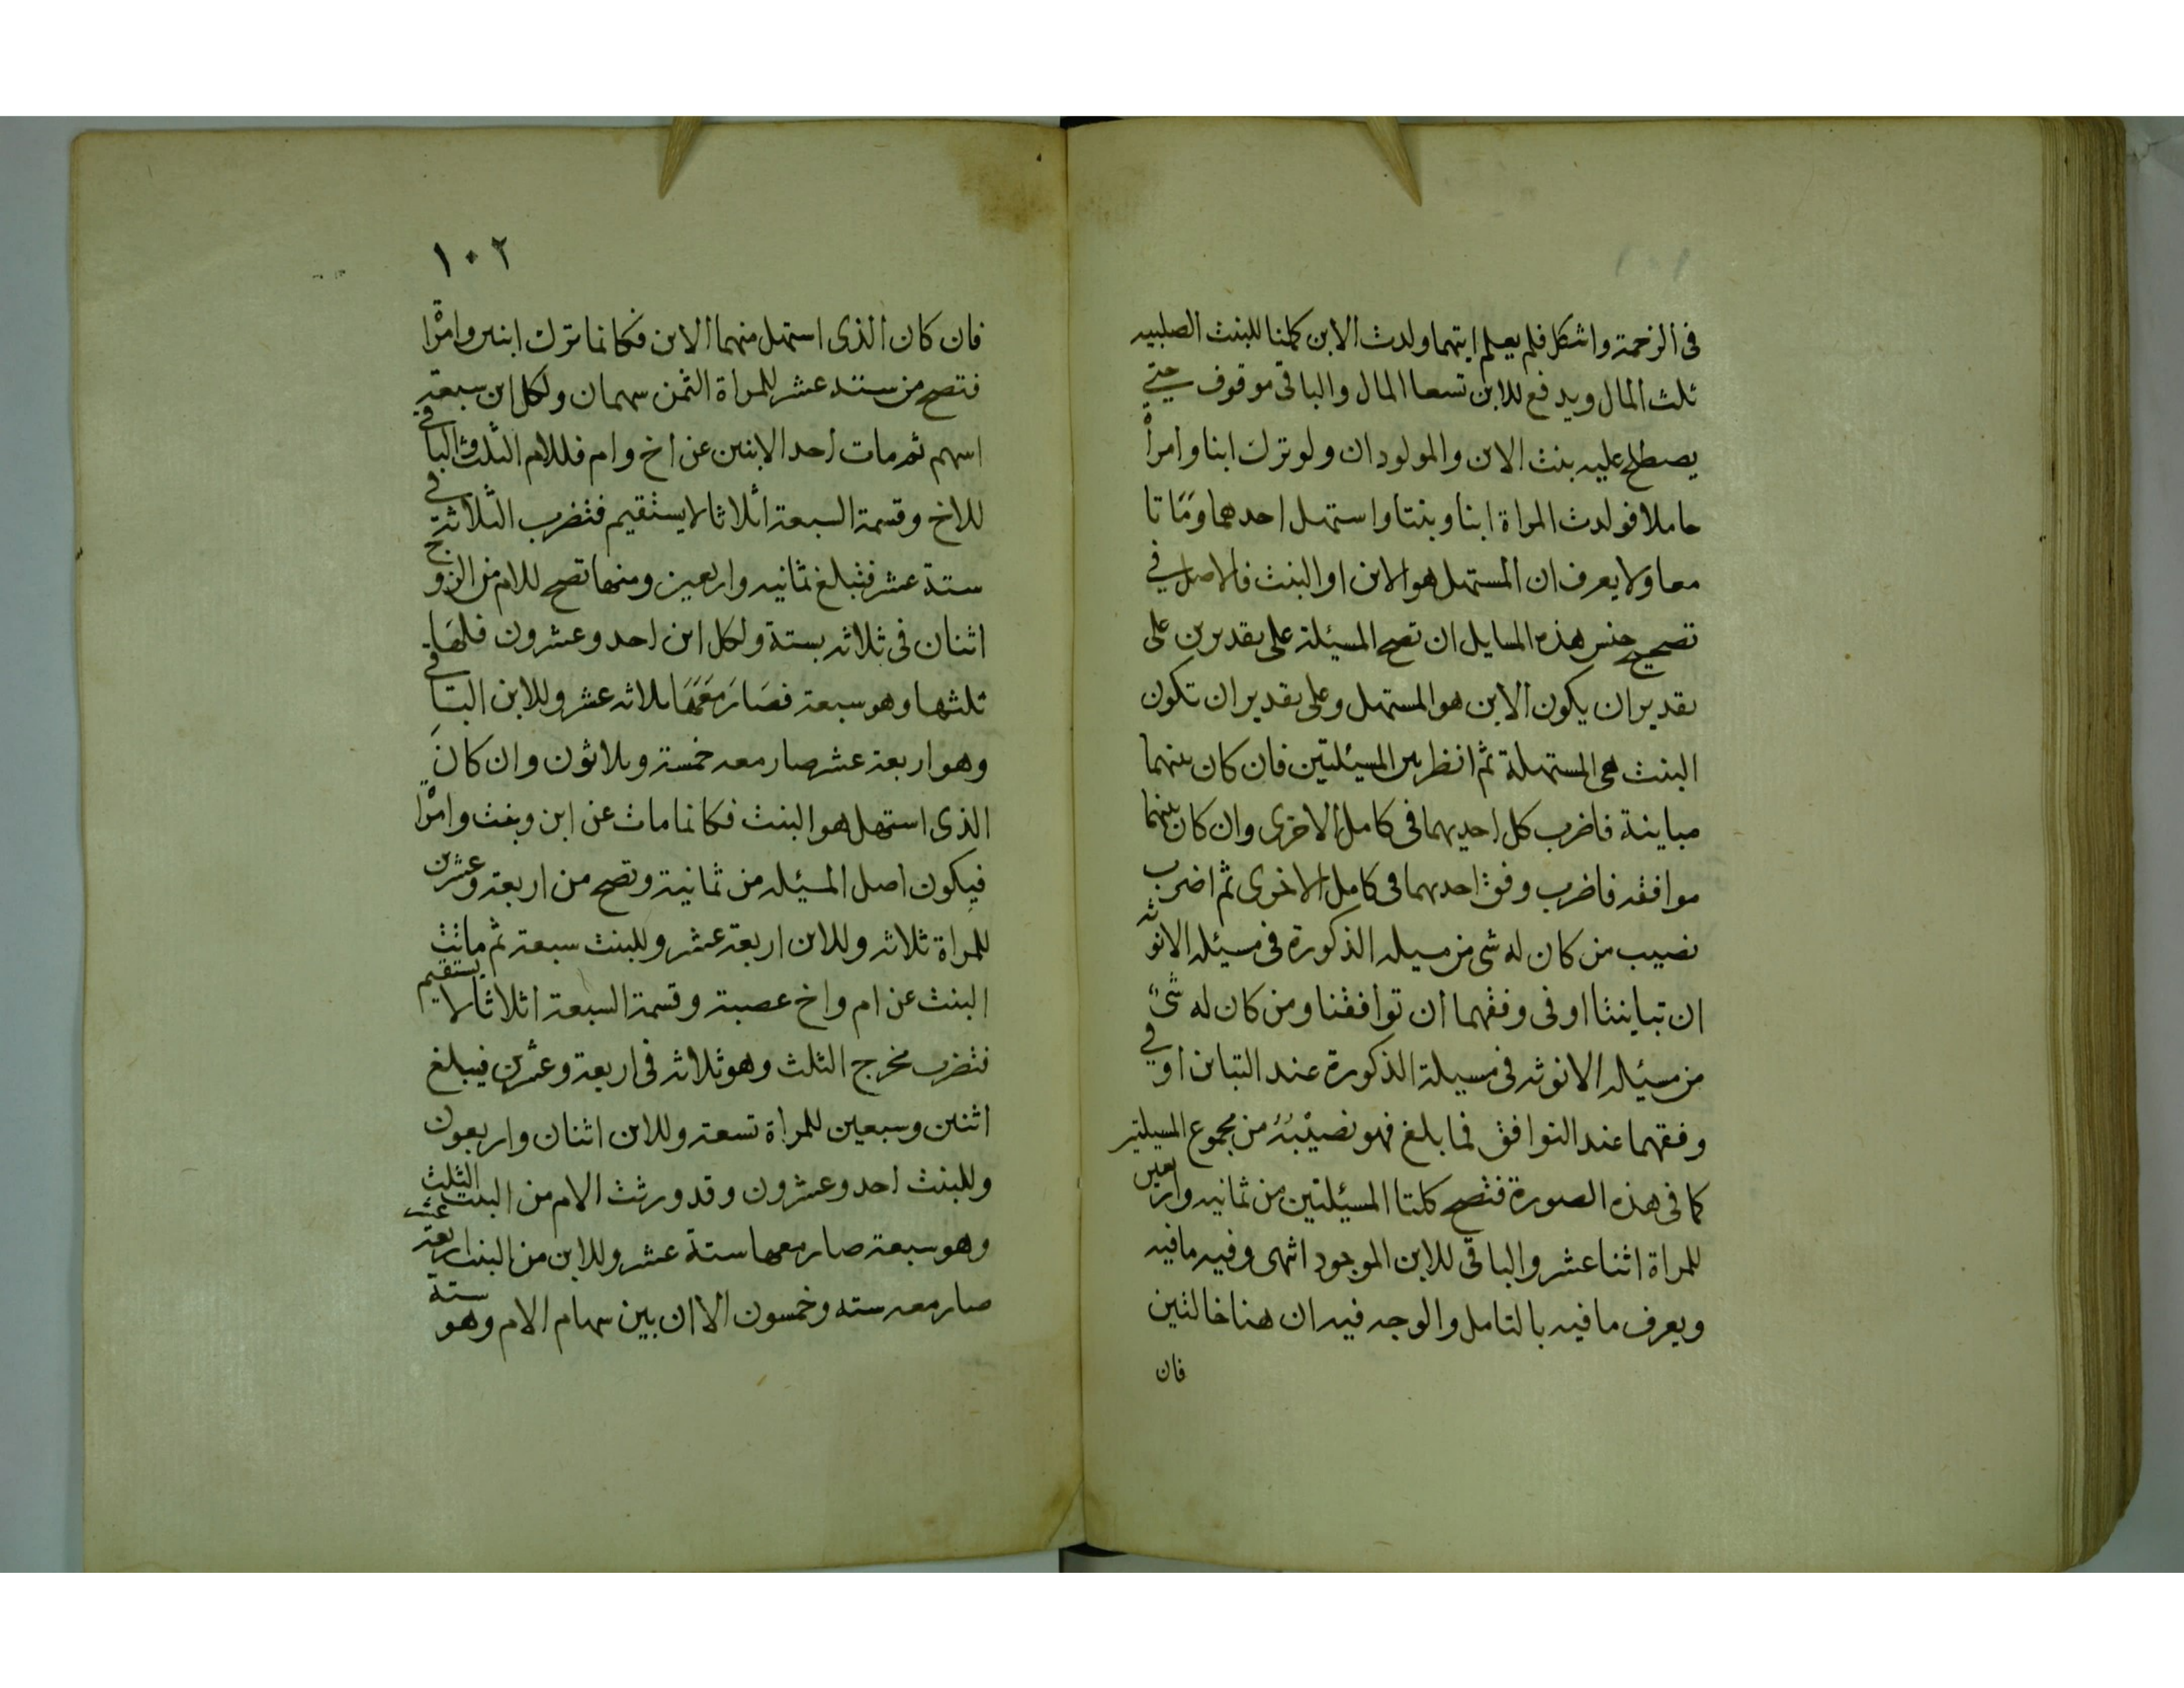 فى الزحمة واشكل فلم يعلم ايتهما ولدت الابن كلمنا للبنت الصلبيه
ثلث المال ويدفع للابن تسعا المال والباقى موقوف حتى
يصطلح عليه بنت الابن والمولودان ولو ترك ابنا وامرأ
حاملا فولدت المراة ابنا وبنتا واستهل احدهما وَمَاتا
معا ولا يعرف ان المستهل هو الابن او البنت فالاصل فى
تصحيح جنس هذه المسايل ان تصح المسيئلة على تقديرين على
تقدير ان يكون الابن هو المستهل وعلى تقدير ان تكون
البنت هى المستهلة ثم انظر بين المسيئلتين فان كان بينهما
مباينة فاضرب كل احديهما فى كامل الاخرى وان كان بينهما
موافقه فاضرب وفق احديهما فى كامل الاخرى ثم اضرب
نصيب من كان له شى من مسيله الذكورة فى مسيئله الانوثه
ان تباينتا او فى وفقهما ان توافقنا ومن كان له شىٌ
من مسيئله الانوثه فى مسيلة الذكورة عند التباين او فى
وفقهما عند التوافق فما بلغ فهو نصيبه من مجموع المسيلتين
كما فى هذه الصورة فتصح كلتا المسيئلتين من ثمانيه واربعين
للمراة اثنا عشر والباقى للابن الموجود انتهى وفيه مافيه
ويعرف مافيه بالتامل والوجه فيه ان هنا خالتين
فان
١٠٢
فان كان الذى استهل منهما الابن فكانما ترك ابنين وامرْا
فتصح من ستة عشر للمراة الثمن سهمان ولكل ابن سبعة
اسهم ثم مات احد الابنين عن اخ وام فللام الثلث والباقى
للاخ وقسمة السبعة اثلاثا لا يستقيم فتضرب الثلاثة فى
ستة عشر فتبلغ ثمانيه واربعين ومنها تصح للام من الزوج
اثنان فى ثلاثه بستة ولكل ابن احد وعشرون فلهَا
ثلثها وهو سبعة فصَارَ مَعَهَا ثلاثه عشر وللابن الباقى
وهو اربعة عشر صار معه خمسة وثلاثون وان كانَ
الذى استهل هو البنت فكانما مات عن ابن وبنت وامرْا
فيكون اصل المسيئله من ثمانية وتصح من اربعة وعشرين
للمراة ثلاثه وللابن اربعة عشر وللبنت سبعة ثم ماتت
البنت عن ام واخ عصبة وقسمة السبعة اثلاثا لا يستقيم
فتضرب مخرج الثلث وهو ثلاثه فى اربعة وعشرين فيبلغ
اثنين وسبعين للمراة تسعة وللابن اثنان واربعون
وللبنت احد وعشرون وقد ورثت الام من البنت الثلث
وهو سبعة صار معها ستة عشر وللابن من البنت اربعة عشر
صار معه سته وخمسون الا ان بين سهام الام وهو ستة